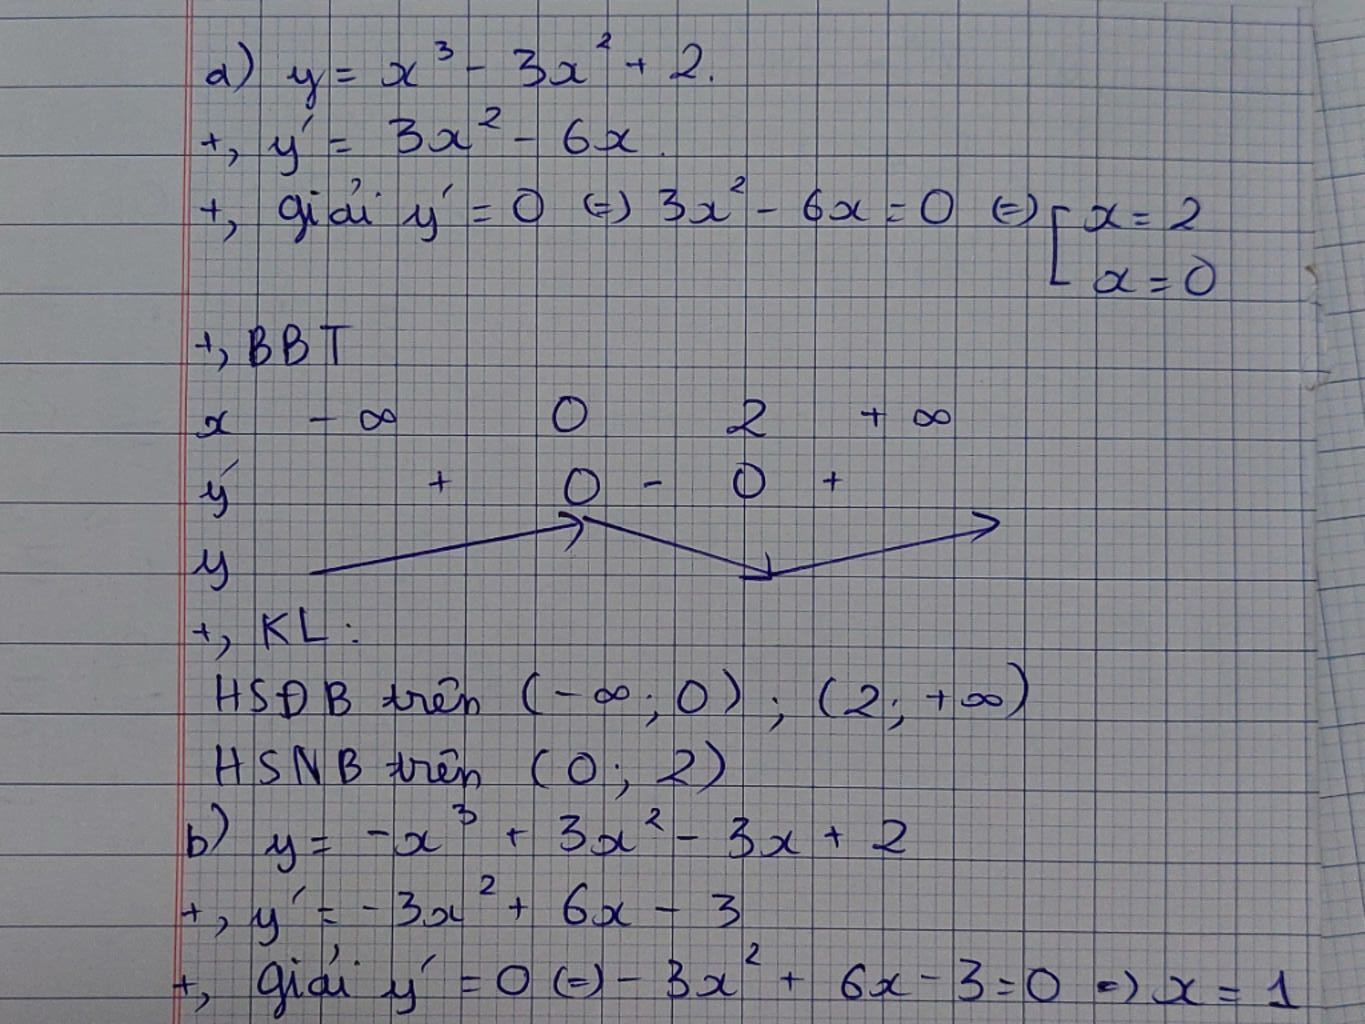 a) y = x³ - 3x² + 2.
+, y' = 3x² - 6x.
+, giải y' = 0 (=) 3x² - 6x = 0 (=) [ x = 2
x = 0
+, BBT
x - ∞ 0 2 + ∞
y' + 0 - 0 +
y
+, KL :
HSĐB trên (-∞; 0) ; (2; +∞)
HSNB trên (0; 2)
b) y = -x³ + 3x² - 3x + 2
+, y' = -3x² + 6x - 3
+, giải y' = 0 (=) - 3x² + 6x - 3 = 0 (=) x = 1